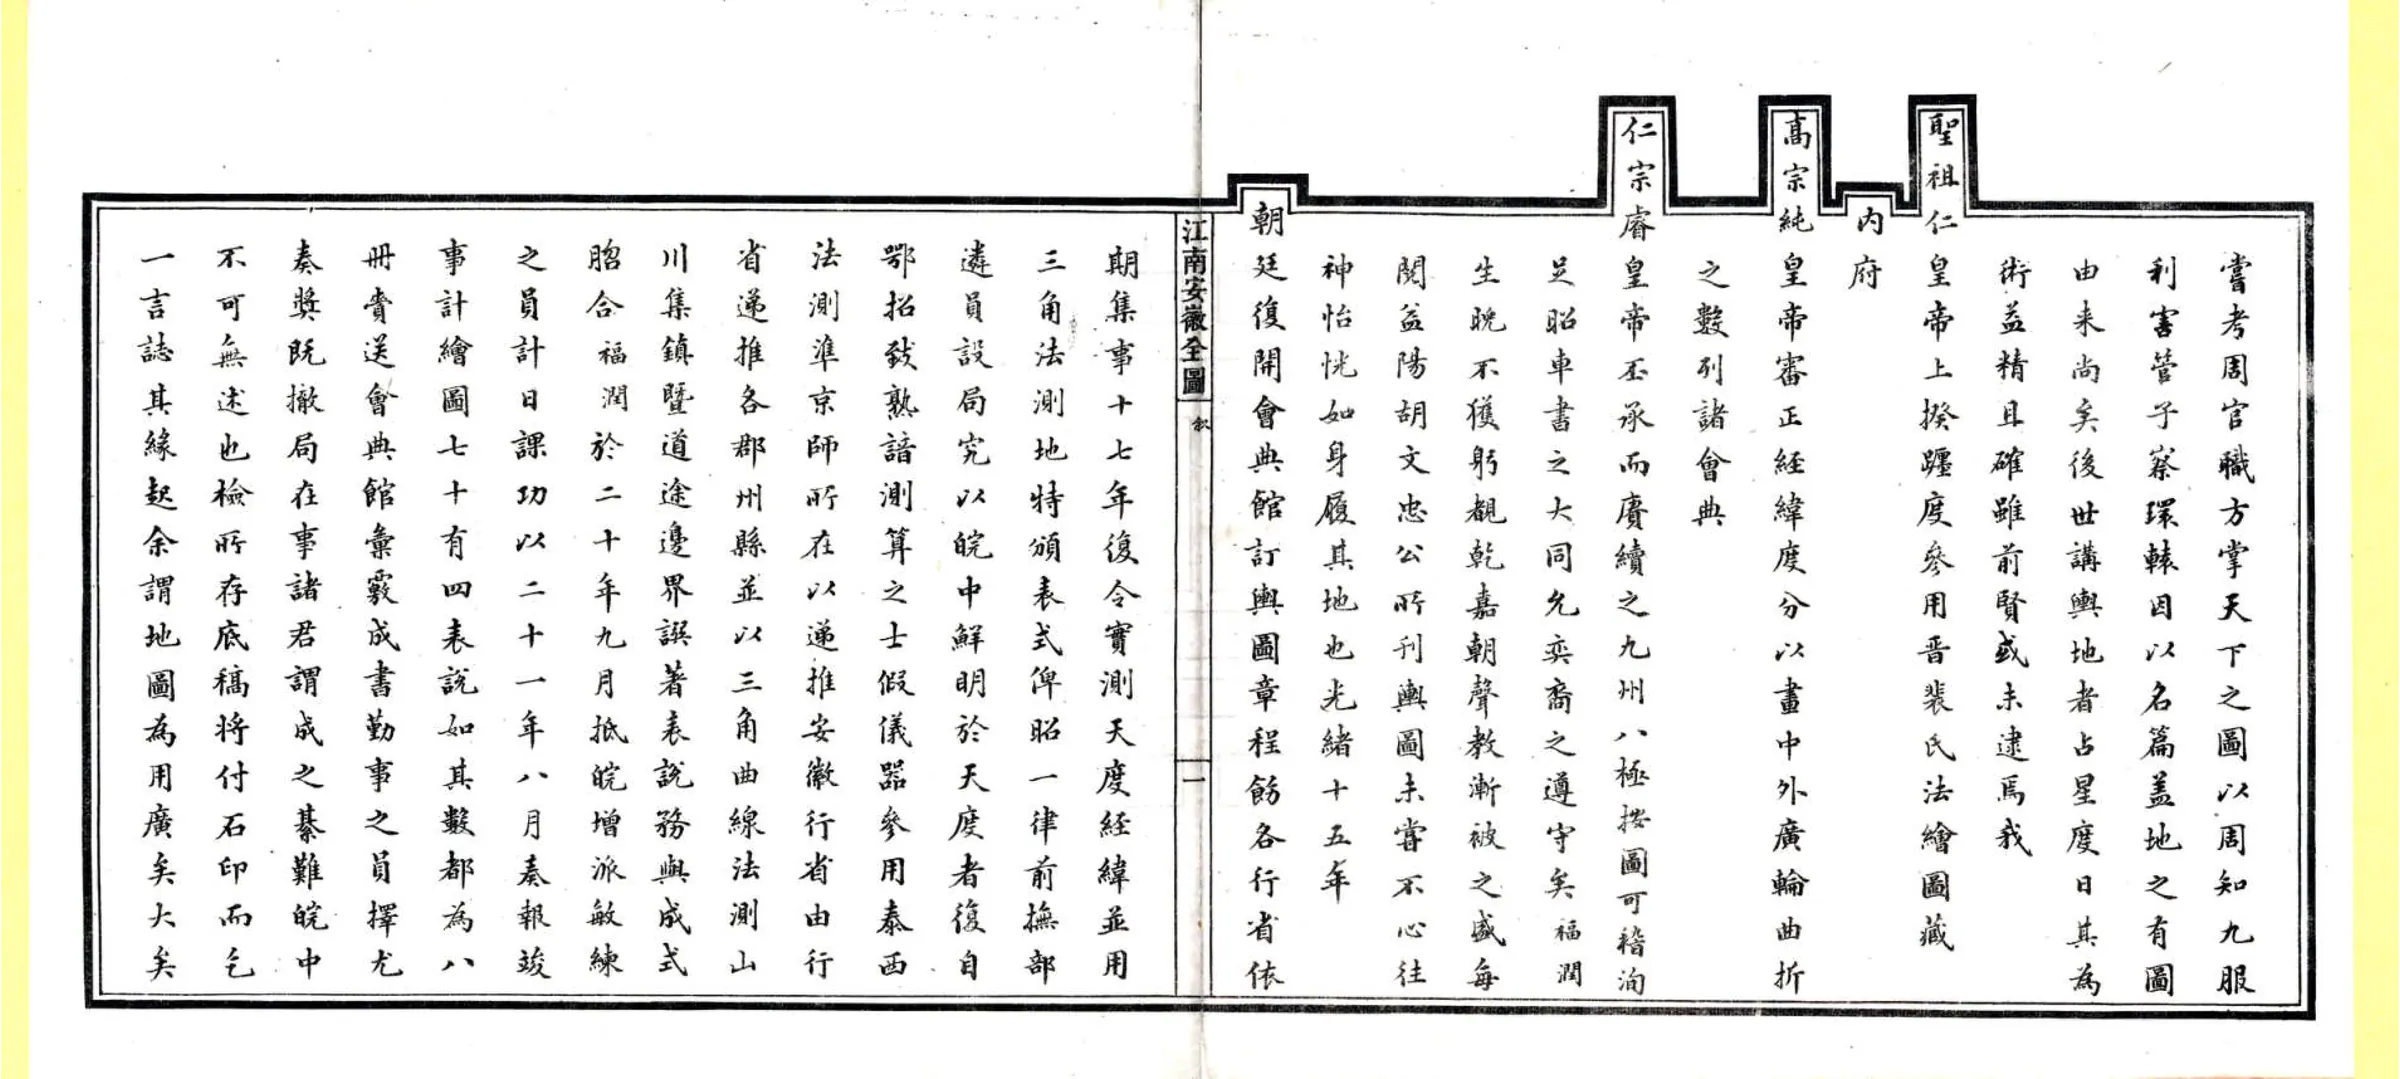 嘗考周官職方掌天下之圖以周知九服
利害管子察環轅因以名篇蓋地之有圖
由来尚矣後世講輿地者占星度日其為
術益精且確雖前賢或未逮焉我
聖祖仁皇帝上揆躔度參用晋裴氏法繪圖藏
内府
高宗純皇帝審正経緯度分以畫中外廣輪曲折
之數列諸會典
仁宗睿皇帝丕承而賡續之九州八極按圖可稽洵
足昭車書之大同允奕裔之遵守矣福潤
生晩不獲躬覩乾嘉朝聲教漸被之盛每
閱益陽胡文忠公所刊輿圖未嘗不心往
神怡恍如身履其地也光緒十五年
朝廷復開會典館訂輿圖章程飭各行省依
江南安徽全圖
敘
一
期集事十七年復令實測天度経緯並用
三角法測地特頒表式俾昭一律前撫部
遴員設局究以皖中鮮明於天度者復自
鄂招致熟諳測算之士假儀器參用泰西
法測準京師所在以递推安徽行省由行
省递推各郡州縣並以三角曲線法測山
川集鎮暨道途邊界譔著表説務與成式
脗合福潤於二十年九月抵皖增派敏練
之員計日課功以二十一年八月奏報竣
事計繪圖七十有四表説如其數都為八
冊賫送會典館彙覈成書勤事之員擇尤
奏獎既撤局在事諸君謂成之綦難皖中
不可無述也檢所存底稿将付石印而乞
一言誌其緣起余謂地圖為用廣矣大矣